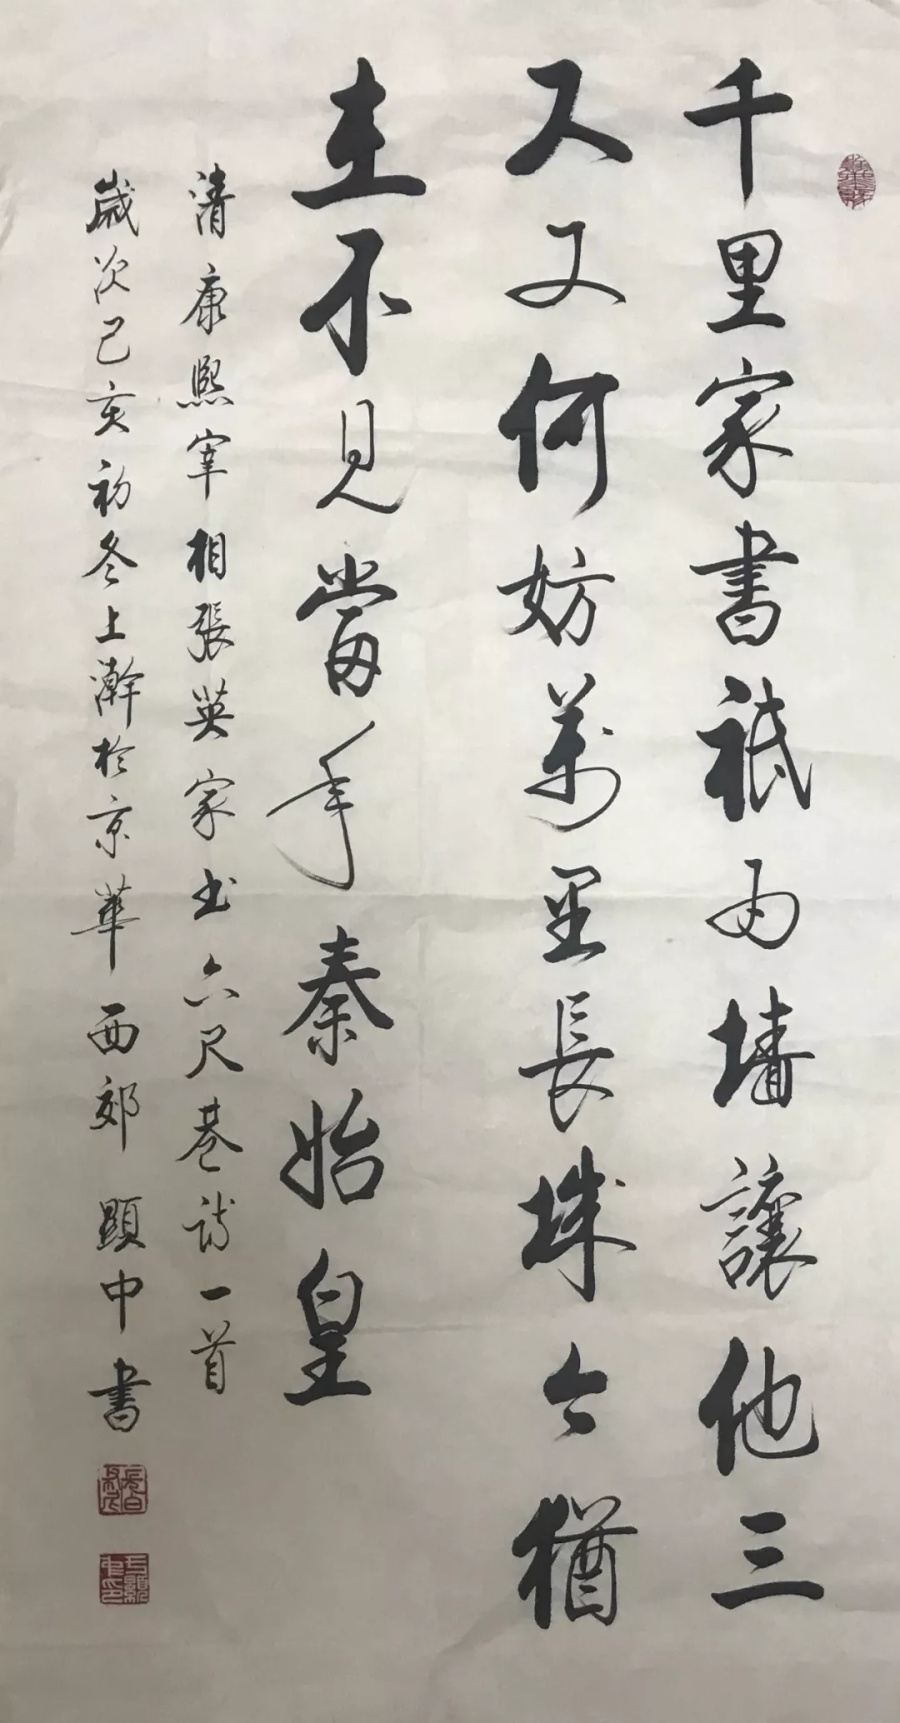 千里家書祗为墙讓他三
尺又何妨萬里長城今猶
在不見當年秦始皇
清康熙宰相張英家书六尺巷詩一首
歲次己亥初冬上澣於京華西郊 顯中書